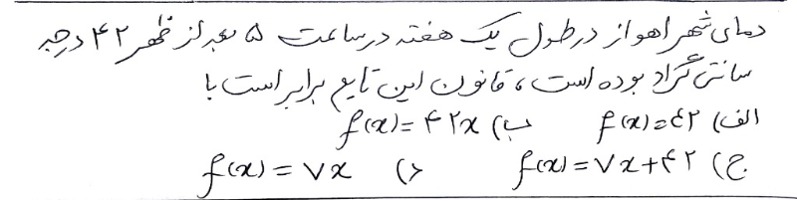 دمای شهر اهواز در طول یک هفته در ساعت ۵ بعد از ظهر ۴۲ درجه
سانتی گراد بوده است، قانون این تابع برابر است با
الف) f(x)=۴۲ ب) f(x)=۴۲x
ج) f(x)=۷x+۴۲ د) f(x)=۷x